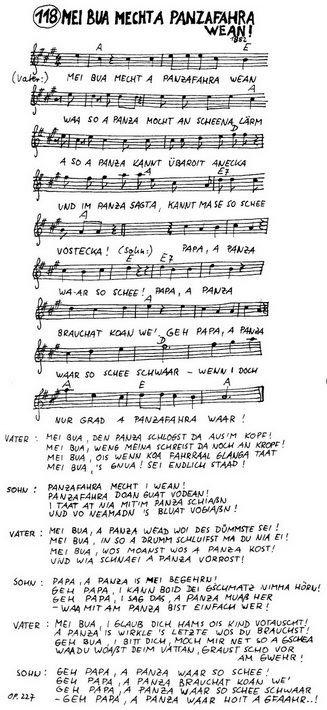 118 MEI BUA MECHT A PANZAFAHRA
WEAN!
1982
A E
(Vater:) MEI BUA MECHT A PANZAFAHRA WEAN
A
WAA SO A PANZA MOCHT AN SCHEENA LÄRM
D
A SO A PANZA KANNT ÜBAROIT ANECKA
A E7
UND IM PANZA SAGTA, KANNT MASE SO SCHEE
A
VOSTECKA! (Sohn:) PAPA, A PANZA
E E7
WA-AR SO SCHEE! PAPA, A PANZA
A
BRAUCHAT KOAN WE', GEH PAPA, A PANZA
D
WAAR SO SCHEE SCHWAAR - WENN I DOCH
A E A
NUR GRAD A PANZAFAHRA WAAR!
VATER: MEI BUA, DEN PANZA SCHLOGST DA AUS'M KOPF!
MEI BUA, WENG MEINA SCHREIST DA NOCH AN KROPF!
MEI BUA, OIS WENN KOA FAHRRAAL GLANGA TAAT
MEI BUA, 'S GNUA! SEI ENDLICH STAAD!
SOHN: PANZAFAHRA MECHT I WEAN!
PANZAFAHRA DOAN GUAT VODEAN!
I TAAT AT NIA MIT'M PANZA SCHIAßN
UND VO NEAMADN 'S BLUAT VOGIAßN!
VATER: MEI BUA, A PANZA WEAD WOI DES DÜMMSTE SEI!
MEI BUA, IN SO A DRUMM SCHLUIFST MA DU NIA EI!
MEI BUA, WOS MOANST WOS A PANZA KOST!
UND WIA SCHNAEI A PANZA VORROST!
SOHN: PAPA, A PANZA IS MEI BEGEHRN!
GEH PAPA, I KANN BOID DEI GSCHMATZ NIMMA HÖRN!
GEH PAPA, I SAG DAS, A PANZA MUAß HER
- WAA MIT AM PANZA BIST EINFACH WER!
VATER: MEI BUA, I GLAUB DICH HAMS OIS KIND VOTAUSCHT!
A PANZA IS WIRKLE 'S LETZTE WOS DU BRAUCHST!
GEH BUA, I BITT DICH, MOCH MIR NET SO A GSCHEA
WAADU WOAßT DEIM VATTAN, GRAUST SCHO VOR
AM GWEHR!
SOHN: GEH PAPA, A PANZA WAAR SO SCHEE!
GEH PAPA, A PANZA BRAUCHAT KOAN WE'
GEH PAPA, A PANZA WAAR SO SCHEE SCHWAAR
- GEH PAPA, A PANZA WAAR HOIT A GFAAHR..!
OP. 227